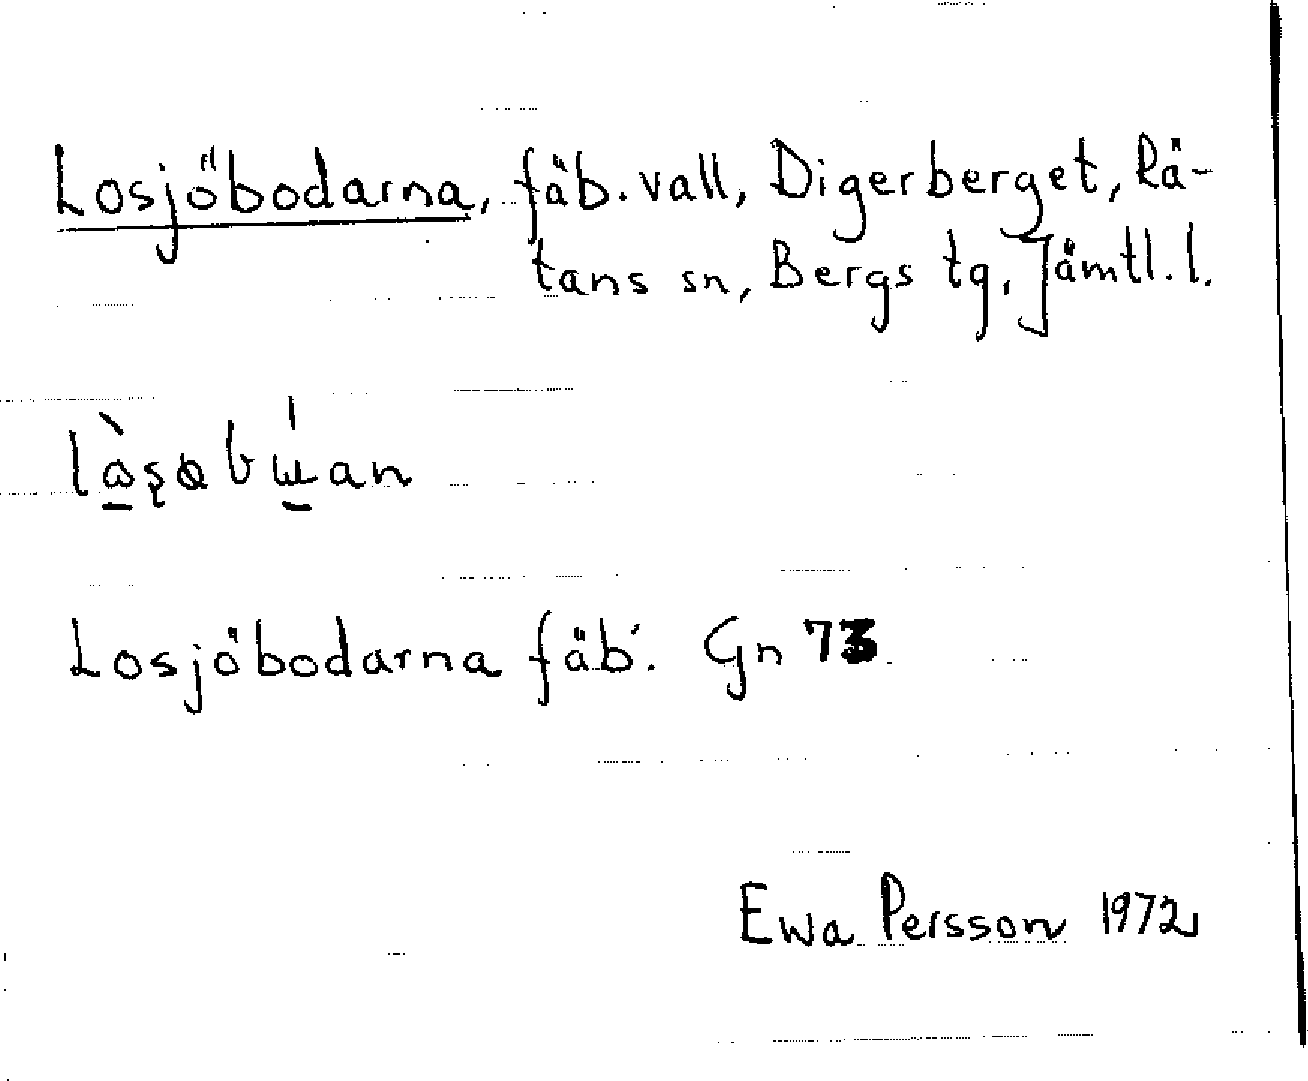 Losjöbodarna, fäb.vall, Digerberget, Rä-
tans sn, Bergs tg, Jämtl. l.
Losjöbodarna fäb. Gn 73.
Ewa Persson 1972